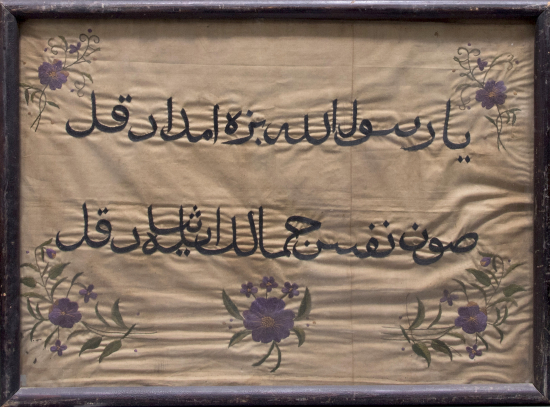 يا رسول الله بزه امداد قل
صوڭ نفس جمالڭ ايله دلشاد قل